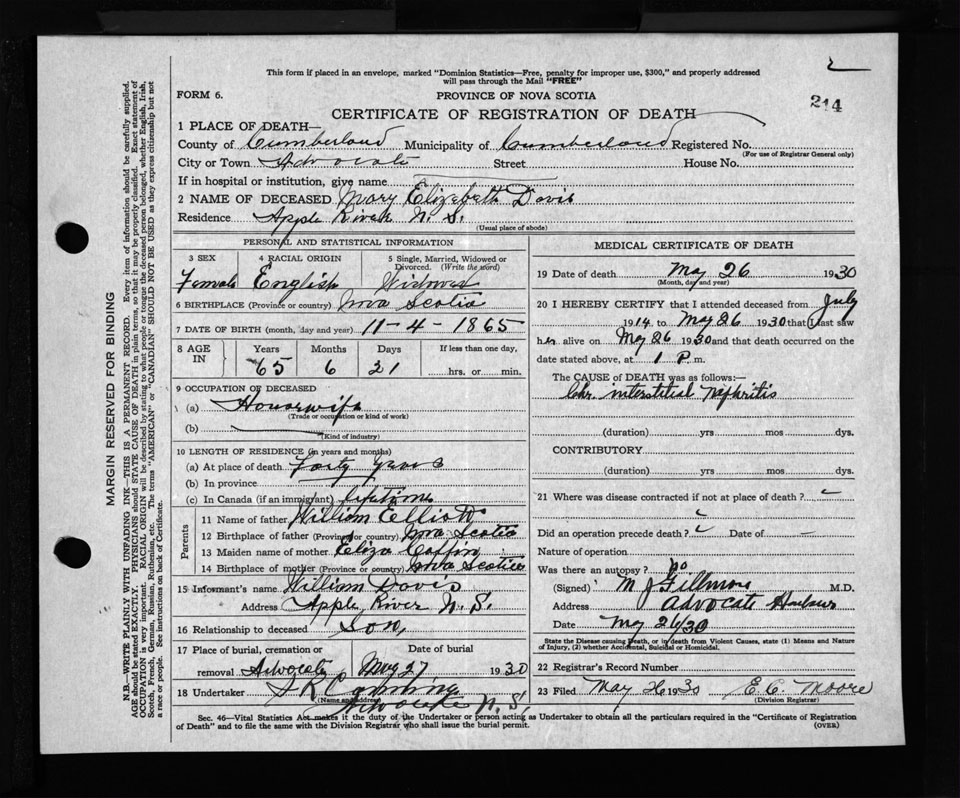 This form if placed in an envelope, marked "Dominion Statistics—Free, penalty for improper use, $300," and properly addressed
will pass through the Mail "FREE"
FORM 6.
PROVINCE OF NOVA SCOTIA
214
CERTIFICATE OF REGISTRATION OF DEATH
1 PLACE OF DEATH—
County of Cumberland Municipality of Cumberland Registered No.
(For use of Registrar General only)
City or Town Advocate Street House No.
If in hospital or institution, give name
2 NAME OF DECEASED Mary Elizabeth Davis
Residence Apple River N. S.
(Usual place of abode)
PERSONAL AND STATISTICAL INFORMATION
3 SEX 4 RACIAL ORIGIN 5 Single, Married, Widowed or
Divorced. (Write the word)
Female English Widowed
6 BIRTHPLACE (Province or country) Nova Scotia
7 DATE OF BIRTH (month, day and year) 11-4-1865
8 AGE IN Years Months Days If less than one day,
65 6 21 hrs. or min.
9 OCCUPATION OF DECEASED
(a) Housewife
(Trade or occupation or kind of work)
(b)
(Kind of industry)
10 LENGTH OF RESIDENCE (in years and months)
(a) At place of death Forty years
(b) In province
(c) In Canada (if an immigrant) lifetime
Parents
11 Name of father William Elliott
12 Birthplace of father (Province or country) Nova Scotia
13 Maiden name of mother Eliza Coffin
14 Birthplace of mother (Province or country) Nova Scotia
15 Informant's name William Davis
Address Apple River N. S.
16 Relationship to deceased Son
17 Place of burial, cremation or Date of burial
removal Advocate May 27 1930
18 Undertaker
(Name and address)
Advocate N. S.
MEDICAL CERTIFICATE OF DEATH
19 Date of death May 26 1930
(Month, day and year)
20 I HEREBY CERTIFY that I attended deceased from July
1914 to May 26 1930 that I last saw
her alive on May 26 1930 and that death occurred on the
date stated above, at 1 P. m.
The CAUSE of DEATH was as follows:—
Chr. interstitial Nephritis
(duration) yrs mos dys.
CONTRIBUTORY
(duration) yrs mos dys.
21 Where was disease contracted if not at place of death?
Did an operation precede death? Date of —
Nature of operation
Was there an autopsy? No
(Signed) M J Fillmore M.D.
Address Advocate Harbour
Date May 26/30
State the Disease causing Death, or in death from Violent Causes, state (1) Means and Nature
of Injury, (2) whether Accidental, Suicidal or Homicidal.
22 Registrar's Record Number
23 Filed May 26 1930 E. C. Moore
(Division Registrar)
Sec. 46—Vital Statistics Act makes it the duty of the Undertaker or person acting as Undertaker to obtain all the particulars required in the "Certificate of Registration
of Death" and to file the same with the Division Registrar who shall issue the burial permit.
(OVER)
MARGIN RESERVED FOR BINDING
N.B.—WRITE PLAINLY WITH UNFADING INK—THIS IS A PERMANENT RECORD. Every item of information should be carefully supplied.
AGE should be stated EXACTLY. PHYSICIANS should STATE CAUSE OF DEATH in plain terms, so that it may be properly classified. Exact statement of
OCCUPATION is very important. RACIAL ORIGIN will be described by stating to what people or tongue the deceased person belonged, whether English, Irish,
Scotch, French, German, Russian, Ruthenian, etc. The terms "AMERICAN" or "CANADIAN" SHOULD NOT BE USED as they express citizenship but not
a race or people. See instructions on back of Certificate.